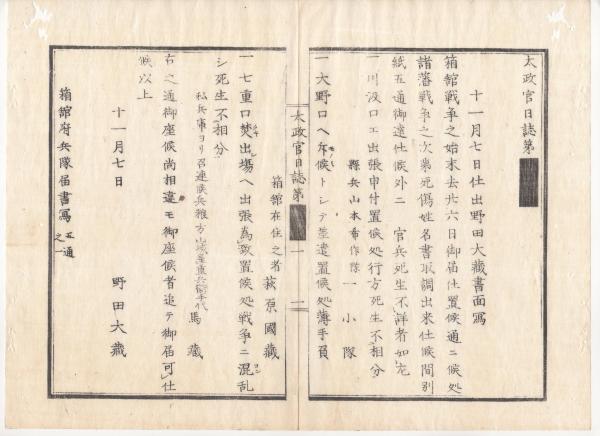 太政官日誌第
十一月七日仕出野田大藏書面寫
箱館戦争之始末去廿六日御届仕置候通ニ候処
諸藩戦争之次第死傷姓名書取調出来仕候間別
紙五通御達仕候外ニ 官兵死生不詳者如左
一川汲口エ出張申付置候処行方死生不相分
縣兵山本 作隊 一小隊
一大野口ヘ斥候トシテ差遣置候処薄手負
太政官日誌第 一 二
箱館在住之者 萩原國藏
一七重口焚出場ヘ出張為致置候処戦争ニ混乱
シ死生不相分
私兵庫ヨリ召連候兵雑方 手代 馬藏
右之通御座候尚相違モ御座候者追テ御届可仕
候以上
十一月七日 野田大藏
箱館府兵隊届書寫五通之一